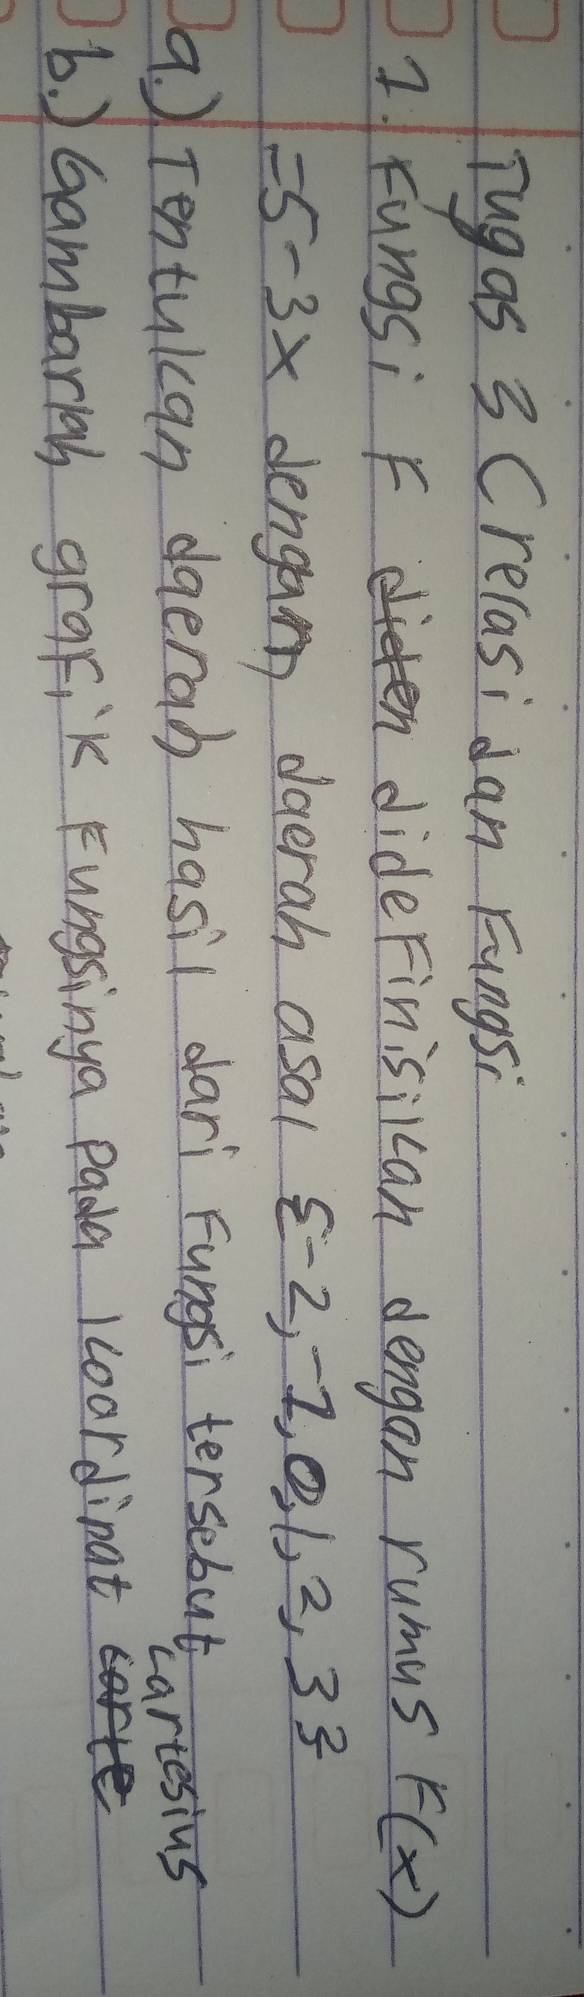 Tugas 3 (relasi dan Fungsi
1. Fungsi F didefinisikan dengan rumus F(x)
=5-3x dengan daerah asal {-2,-1,0,1,2,3}
a.) Tentukan daerah hasil dari Fungsi tersebut
b.) Gambarlah grafik Fungsinya pada koardinat cartesius